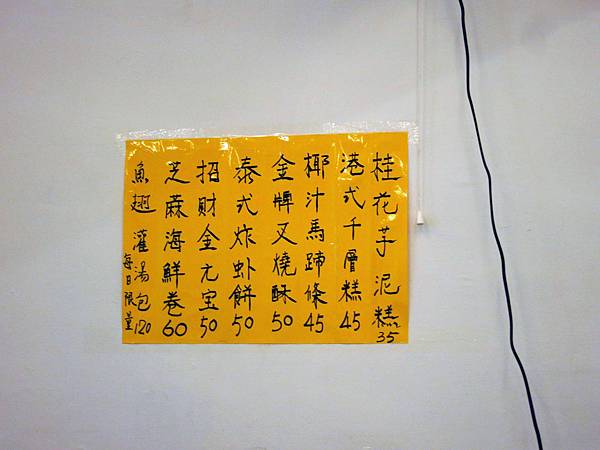 桂花芋泥糕35
港式千層糕45
椰汁馬蹄條45
金牌叉燒酥50
泰式炸虾餅50
招財金元宝50
芝麻海鮮卷60
魚翅灌湯包120
每日限量